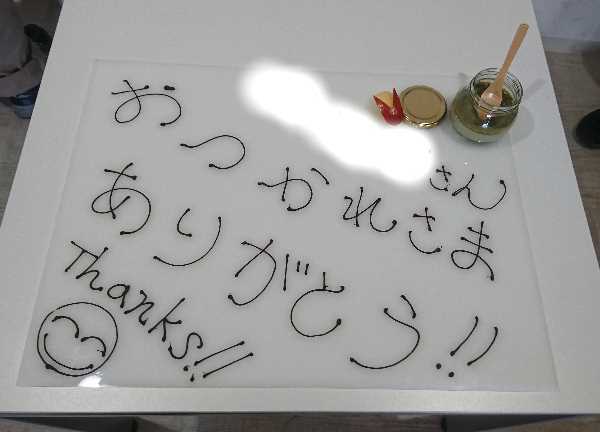 さん
おつかれさま
ありがとう!!
Thanks!!